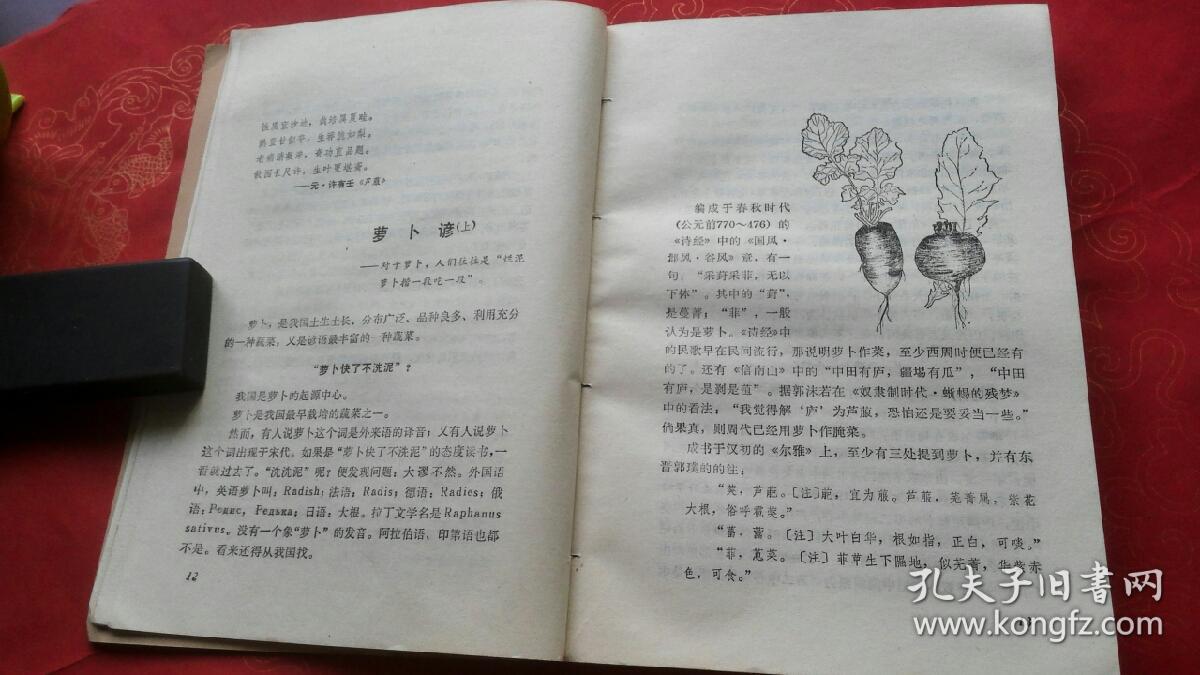 性质宜沙地，栽培属夏畦。
熟宜甘似芋，生荐脆如梨。
老病消凝滞，奇功直品题。
故园长尺许，生叶更堪齑。
——元·许有壬《芦菔》
萝卜谚（上）
——对于萝卜，人们往往是“烘泥
萝卜揩一段吃一段”。
萝卜，是我国土生土长，分布广泛、品种良多、利用充分
的一种蔬菜，又是谚语最丰富的一种蔬菜。
“萝卜快了不洗泥”？
我国是萝卜的起源中心。
萝卜是我国最早栽培的蔬菜之一。
然而，有人说萝卜这个词是外来语的译音；又有人说萝卜
这个词出现于宋代。如果是“萝卜快了不洗泥”的态度读书，一
看就过去了。“洗洗泥”呢？便发现问题：大谬不然。外国语
中，英语萝卜叫：Radish；法语：Radis；德语：Radies；俄
语：Редис, Редька；日语：大根。拉丁文学名是Raphanus
sativus。没有一个象“萝卜”的发音。阿拉伯语、印第语也都
不是。看来还得从我国找。
12
编成于春秋时代
（公元前770～476）的
《诗经》中的《国风·
邶风·谷风》章，有一
句，“采葑采菲，无以
下体”。其中的“葑”，
是蔓菁；“菲”，一般
认为是萝卜。《诗经》中
的民歌早在民间流行，那说明萝卜作菜，至少西周时便已经有
的了。还有《信南山》中的“中田有庐，疆埸有瓜”，“中田
有庐，是剥是菹”。据郭沫若在《奴隶制时代·蜥蜴的残梦》
中的看法，“我觉得解‘庐’为芦菔，恐怕还是要妥当一些。”
倘果真，则周代已经用萝卜作腌菜。
成书于汉初的《尔雅》上，至少有三处提到萝卜，并有东
晋郭璞的的注：
“葖，芦萉。〔注〕萉，宜为菔。芦菔，芜菁属，紫花
大根，俗呼雹葖。”
“葍，䔰。〔注〕大叶白华，根如指，正白，可啖。”
“菲，蒠菜。〔注〕菲草生下隰地，似芜菁，华紫赤
色，可食。”
孔夫子旧书网
www.kongfz.com